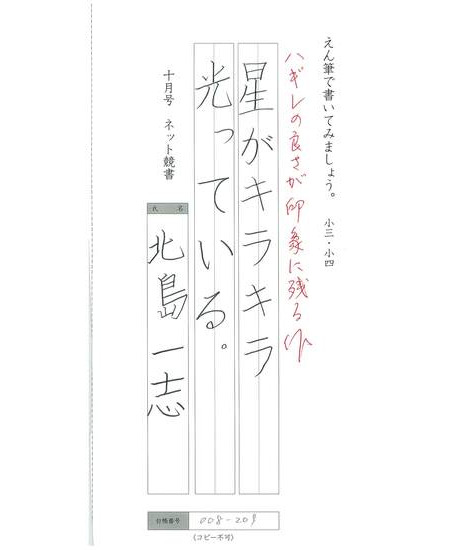 えん筆で書いてみましょう。 小三・小四
ハギレの良さが印象に残る作
星がキラキラ
光っている。
十月号 ネット競書
氏名
北島一志
台帳番号 008-209
(コピー不可)